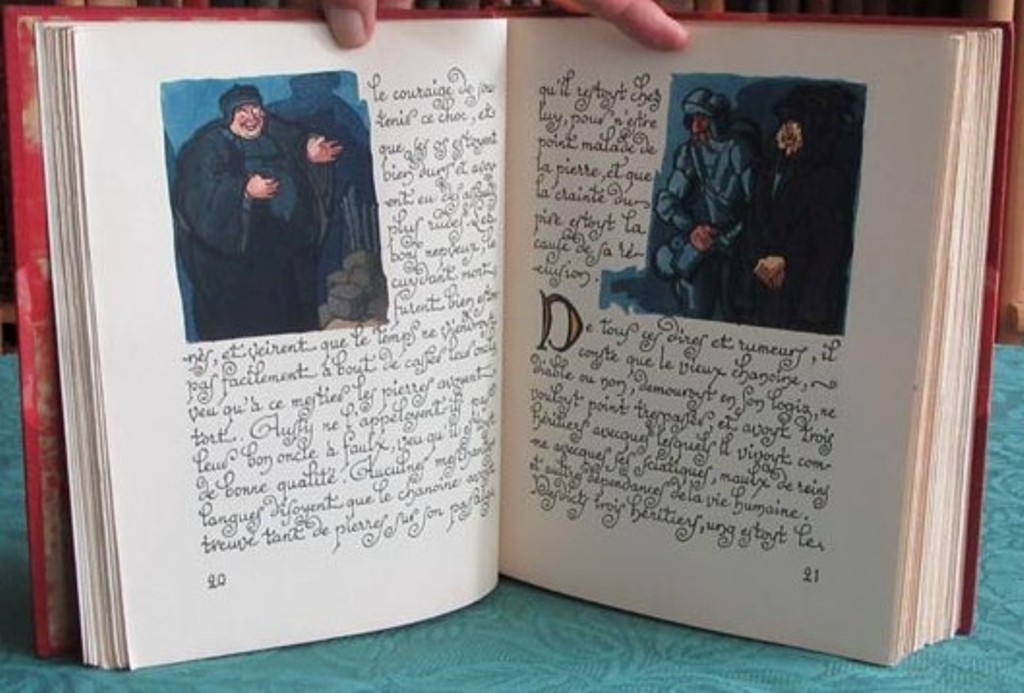 le couraige de sou
tenir ce choc, et
que les os estoyent
bien durs et avoy
ent eu de assauts
plus rudes. Les
bons nepveux, le
cuydant mort,
furent bien eston
nés, et veirent que le temps ne viendroyt
pas facilement à bout de casser leurs oncle
veu qu'à ce mestier les pierres avoyent
tort. Aussy ne l'appeloyent-ils pas
leur bon oncle à faulx, veu qu'il estoyt
de bonne qualité. Aulcunes meschantes
langues disoyent que le chanoine avoyt
treuvé tant de pierres sur son passaige
20
qu'il restoyt chez
luy, pour n'estre
point malade de
la pierre, et que
la crainte du
pire estoyt la
cause de sa ré-
clusion.
De tous ces dires et rumeurs, il
conste que le vieux chanoine,
diable ou non, demouroyt en son logiz, ne
vouloyt point trepasser, et avoyt trois
héritiers avecques lesquels il vivoyt com-
me avecques ses sciatiques, maulx de reins
et aultres dépendances de la vie humaine.
Desdicts trois héritiers, ung estoyt le
21